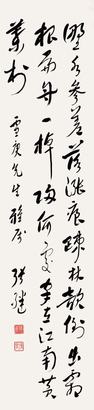 野水參差落漲痕疎林欹倒出霜
根扁舟一棹歸何處家在江南黃
葉村
雪庚先生雅屬 張繼